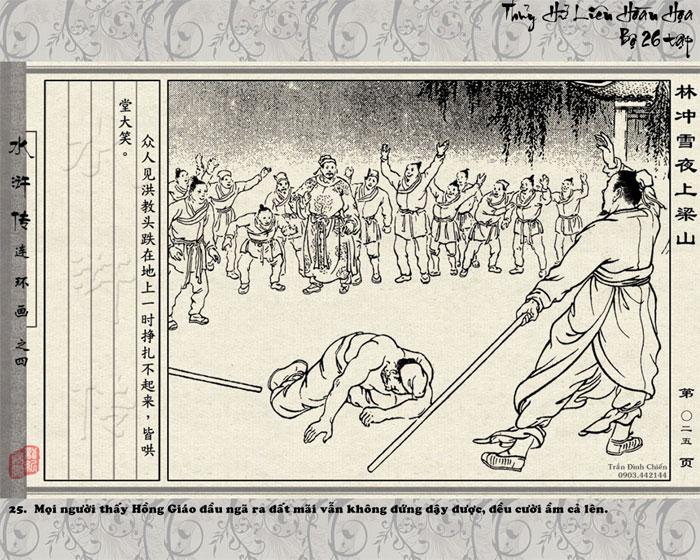 Thủy Hử Liên Hoàn Họa
Bộ 26 tập
林冲雪夜上梁山
众人见洪教头跌在地上一时挣扎不起来，皆哄
堂大笑。
水浒传
水浒传连环画之四
第〇二五页
Trần Đình Chiến
0903.442144
25. Mọi người thấy Hồng Giáo đầu ngã ra đất mãi vẫn không đứng dậy được, đều cười ầm cả lên.